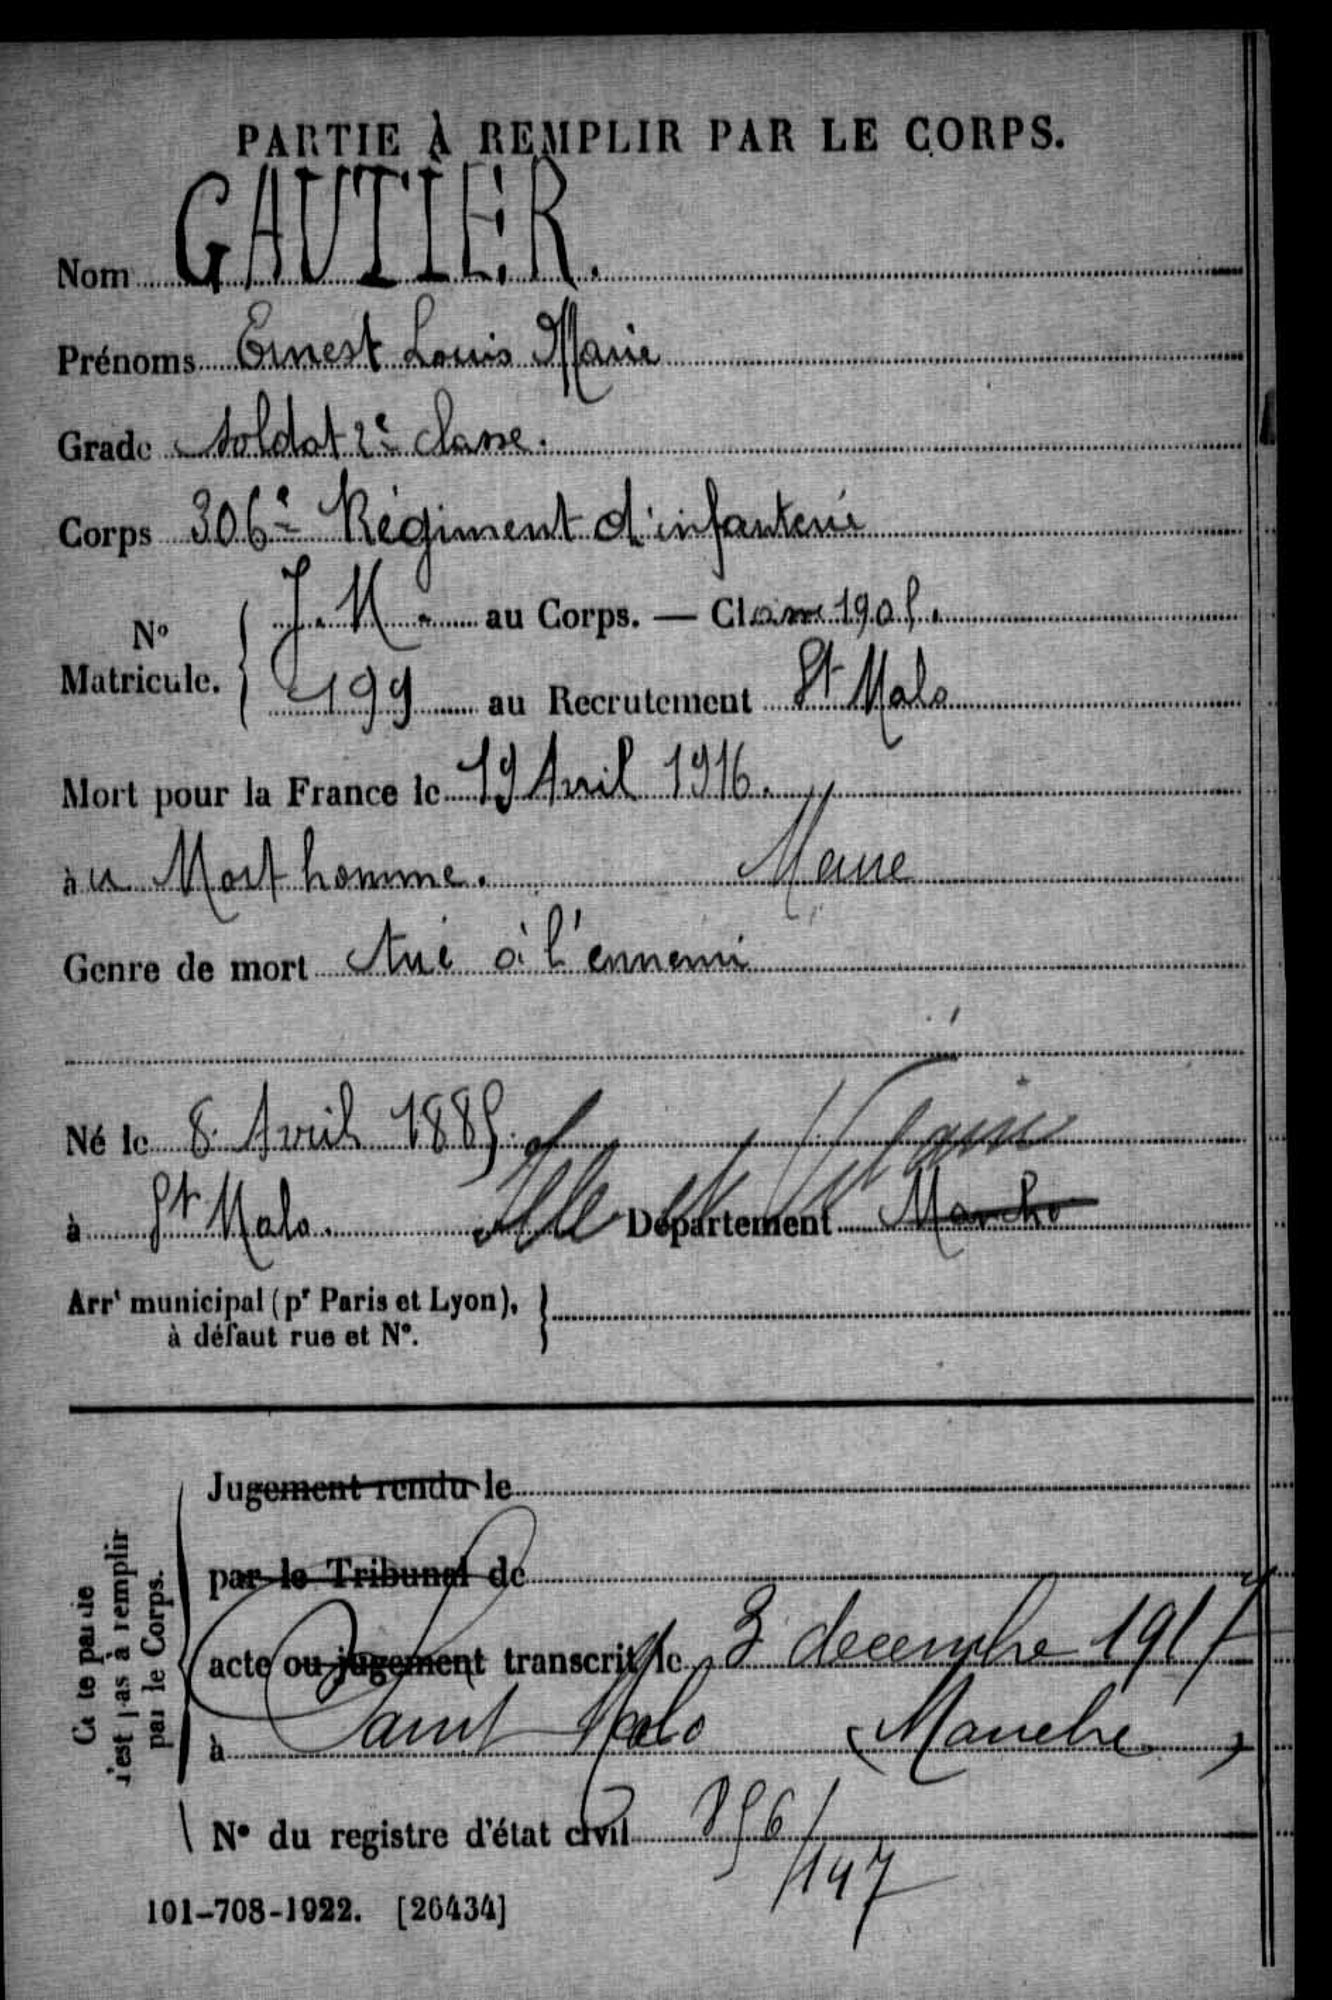 PARTIE À REMPLIR PAR LE CORPS.
Nom GAUTIER.
Prénoms Ernest Louis Marie
Grade soldat 2e classe.
Corps 306e Régiment d'infanterie
N° Matricule. { J. M. au Corps. — Classe 1905.
199 au Recrutement St Malo
Mort pour la France le 19 Avril 1916.
au Mort homme. Meuse
Genre de mort tué à l'ennemi
Né le 8 Avril 1885.
à St Malo. Ille et Vilaine Département Manche
Arrt municipal (pr Paris et Lyon), }
à défaut rue et N°.
Cette partie n'est pas à remplir par le Corps.
Jugement rendu le
par le Tribunal de
acte ou jugement transcrit le 3 decembre 1917
à Saint Malo (Manche)
N° du registre d'état civil 856/147
101-708-1922. [26434]